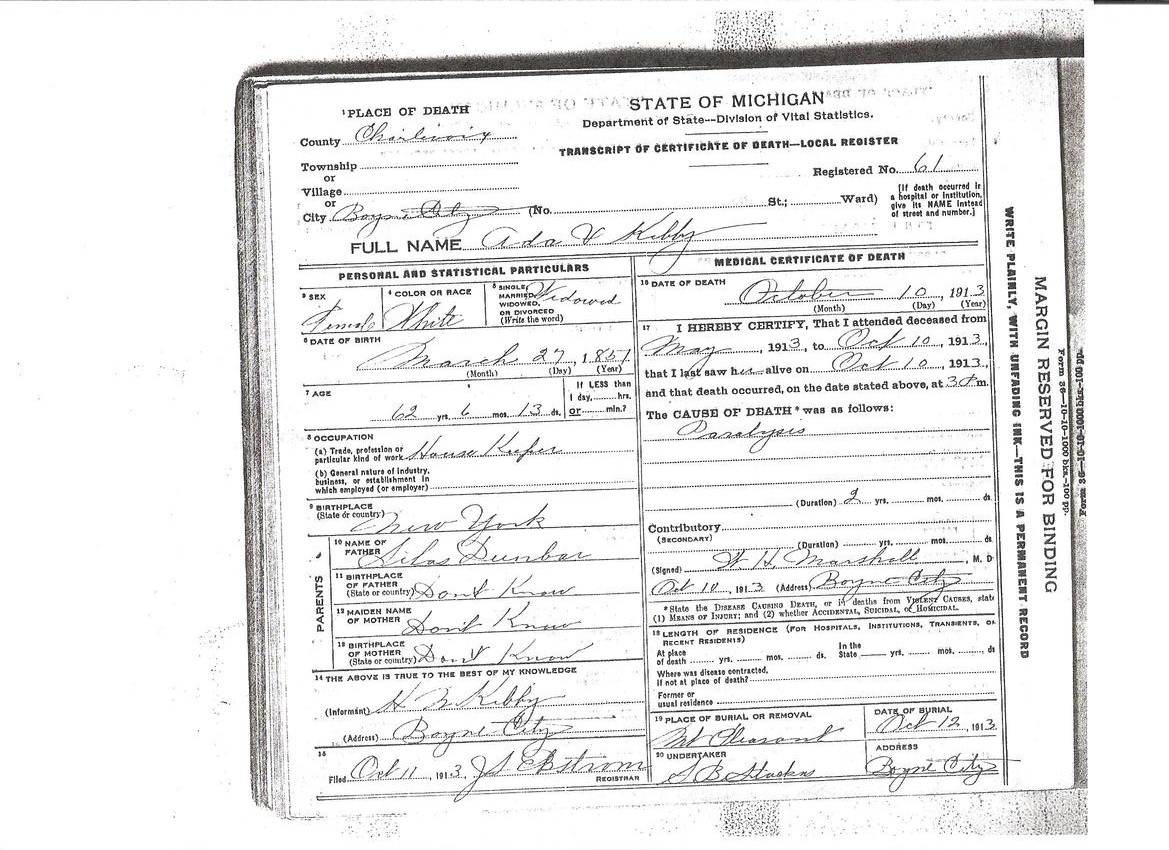 STATE OF MICHIGAN
Department of State--Division of Vital Statistics.
TRANSCRIPT OF CERTIFICATE OF DEATH—LOCAL REGISTER
1 PLACE OF DEATH
County Charlevoix
Township
or
Village
or
City Boyne City (No. St.; Ward)
Registered No. 61
[If death occurred in
a hospital or institution,
give its NAME instead
of street and number.]
FULL NAME Ada V Kibby
PERSONAL AND STATISTICAL PARTICULARS
3 SEX
Female
4 COLOR OR RACE
White
5 SINGLE,
MARRIED,
WIDOWED,
OR DIVORCED
(Write the word)
Widowed
6 DATE OF BIRTH
March 27, 1851
(Month) (Day) (Year)
7 AGE
62 yrs. 6 mos. 13 ds.
If LESS than
1 day, hrs.
or min.?
8 OCCUPATION
(a) Trade, profession or
particular kind of work House Keeper
(b) General nature of industry,
business, or establishment in
which employed (or employer)
9 BIRTHPLACE
(State or country)
New York
PARENTS
10 NAME OF
FATHER
Silas Dunbar
11 BIRTHPLACE
OF FATHER
(State or country) Dont Know
12 MAIDEN NAME
OF MOTHER
Don't Know
13 BIRTHPLACE
OF MOTHER
(State or country) Dont Know
14 THE ABOVE IS TRUE TO THE BEST OF MY KNOWLEDGE
(Informant) H N Kibby
(Address) Boyne City
15
Filed Oct 11, 1913 Ekstrom
REGISTRAR
MEDICAL CERTIFICATE OF DEATH
16 DATE OF DEATH
October 10, 1913
(Month) (Day) (Year)
17 I HEREBY CERTIFY, That I attended deceased from
May, 1913, to Oct 10, 1913,
that I last saw her alive on Oct 10, 1913,
and that death occurred, on the date stated above, at 3 P m.
The CAUSE OF DEATH* was as follows:
Paralysis
(Duration) 2 yrs. mos. ds.
Contributory
(SECONDARY)
(Duration) yrs. mos. ds
(Signed) W. H. Marshall, M. D
Oct 10, 1913 (Address) Boyne City
*State the DISEASE CAUSING DEATH, or in deaths from VIOLENT CAUSES, state
(1) MEANS OF INJURY; and (2) whether ACCIDENTAL, SUICIDAL, or HOMICIDAL.
18 LENGTH OF RESIDENCE (FOR HOSPITALS, INSTITUTIONS, TRANSIENTS, OR
RECENT RESIDENTS)
At place
of death yrs. mos. ds.
In the
State yrs. mos. ds
Where was disease contracted,
if not at place of death?
Former or
usual residence
19 PLACE OF BURIAL OR REMOVAL
Mt Pleasant
DATE OF BURIAL
Oct 12, 1913
20 UNDERTAKER
S B Stackus
ADDRESS
Boyne City
WRITE PLAINLY, WITH UNFADING INK—THIS IS A PERMANENT RECORD
MARGIN RESERVED FOR BINDING
Form 36—10-10-1000 bks.-100 pp.